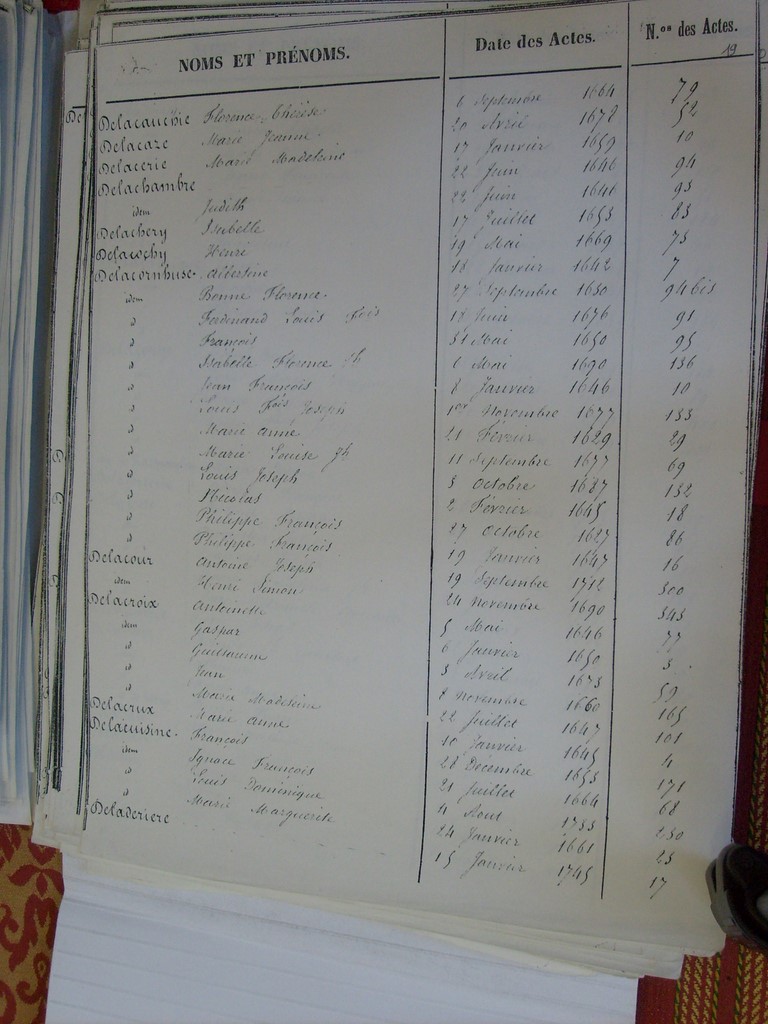 NOMS ET PRÉNOMS. Date des Actes. N.os des Actes.
19
Delacauchie Florence Thérèse 6 Septembre 1664 79
Delacaze Marie Jeanne 20 Avril 1678 52
Delacerie Marie Madeleine 17 Janvier 1659 10
Delachambre 22 Juin 1646 94
idem Judith 22 Juin 1646 93
Delachery Isabelle 17 Juillet 1653 83
Delacochy Henri 19 Mai 1669 73
Delacornhuse. Albertine 18 Janvier 1642 7
idem Bonne Florence 27 Septembre 1650 94 bis
d Ferdinand Louis Fois 18 Juin 1676 91
d François 31 Mai 1650 95
d Isabelle Florence Jh 6 Mai 1690 136
d Jean François 8 Janvier 1646 10
d Louis Fois Joseph 1er Novembre 1677 133
d Marie Anne 21 Février 1629 29
d Marie Louise Jh 11 Septembre 1677 69
d Louis Joseph 3 Octobre 1687 132
d Nicolas 2 Février 1645 18
d Philippe François 27 Octobre 1627 86
d Philippe François 19 Janvier 1647 16
Delacour Antoine Joseph 19 Septembre 1712 300
idem Henri Simon 24 Novembre 1690 343
Delacroix Antoinette 5 Mai 1646 77
idem Gaspar 6 Janvier 1650 3
d Guillaume 3 Avril 1673 59
d Jean 8 Novembre 1660 165
d Marie Madeleine 22 Juillet 1647 101
Delacrux Marie Anne 10 Janvier 1645 4
Delacuisine. François 28 Decembre 1653 171
idem Ignace François 21 Juillet 1664 68
d Louis Dominique 4 Aout 1733 230
d Marie Marguerite 24 Janvier 1661 23
Deladeriere 15 Janvier 1745 17